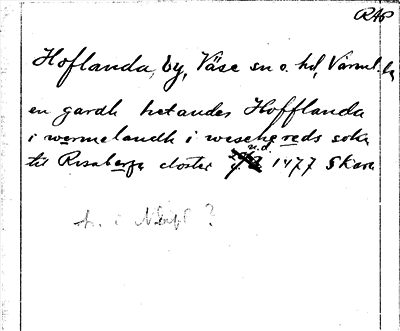 RAP
Hoflanda, by, Väse sn o. hd, Värml. län
en gardh hetandes Hofflanda
i wermelandh i wesehereds sokn
til Risaberga closter u.d. 1477 Skara
i ?